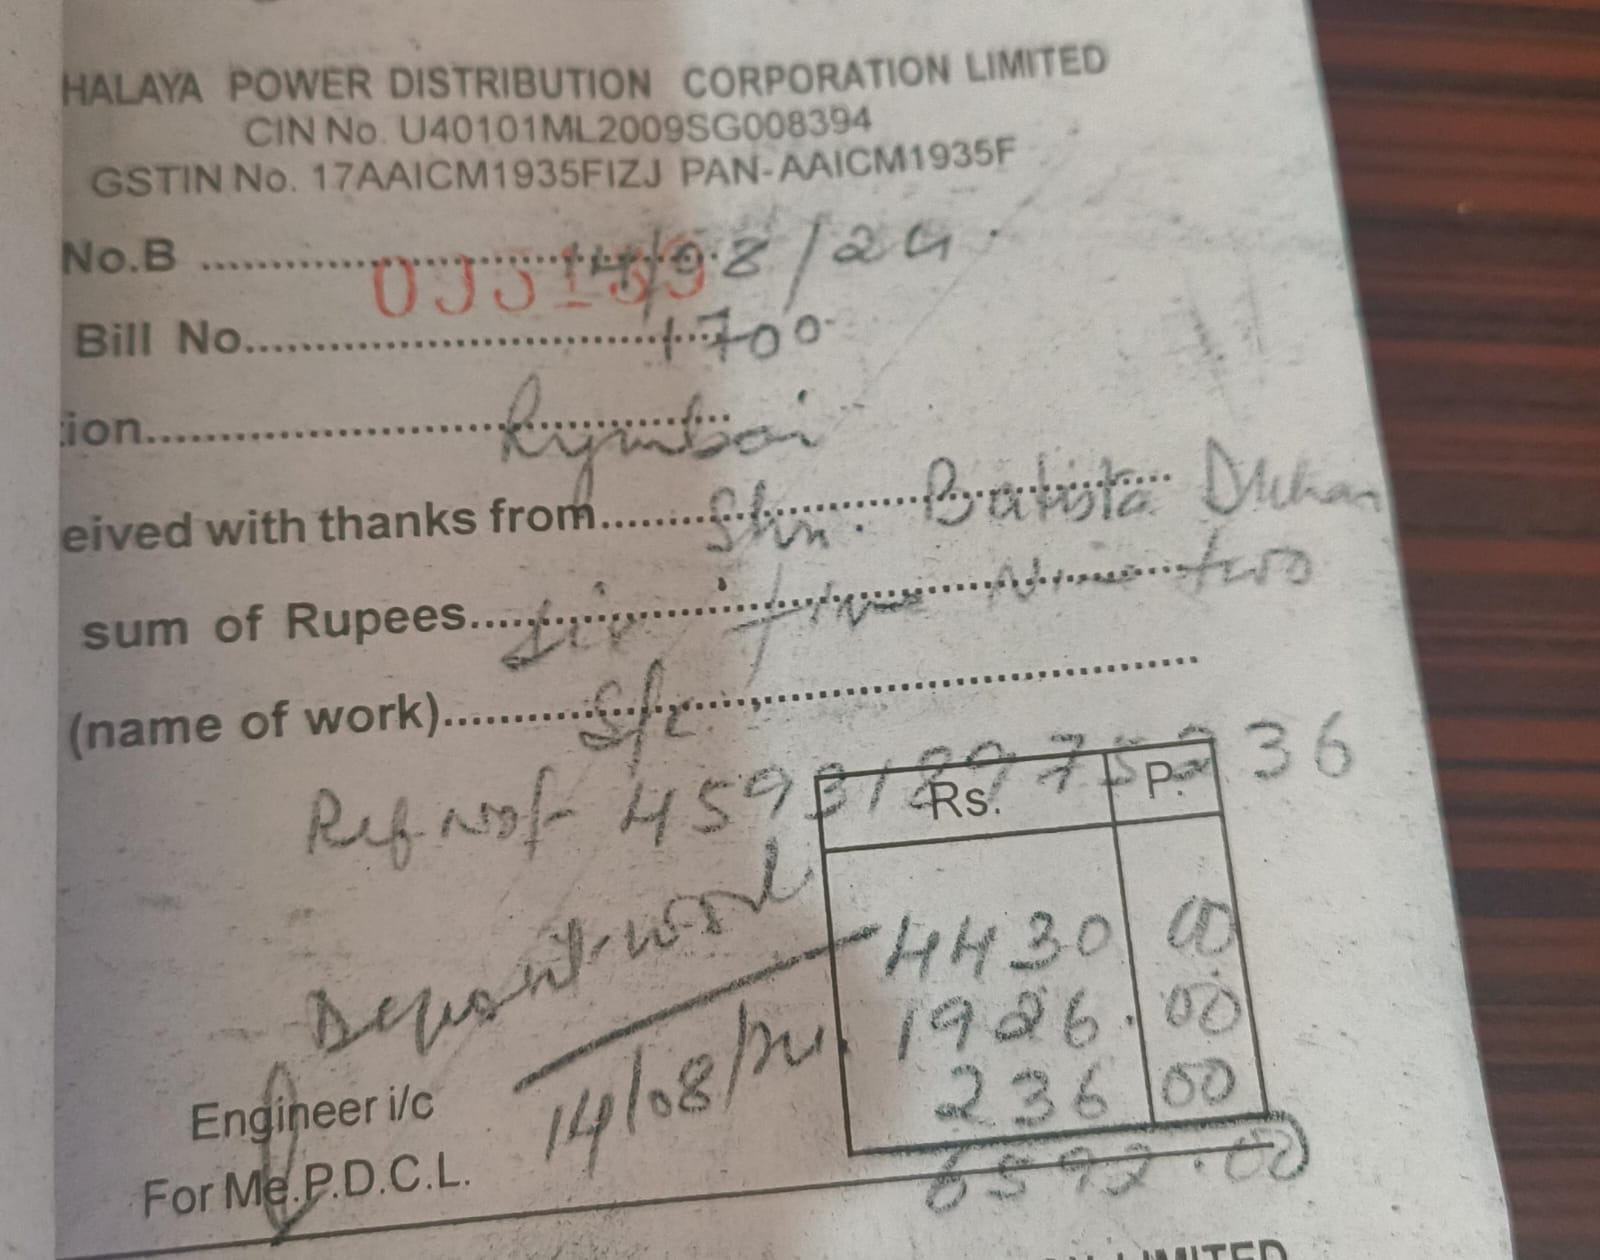 HALAYA POWER DISTRIBUTION CORPORATION LIMITED
CIN No. U40101ML2009SG008394
GSTIN No. 17AAICM1935FIZJ PAN-AAICM1935F
No.B .................... 14/08/24.
Bill No.................... 1700
tion.................... Rymbai
eived with thanks from.................... Shri. Batista
sum of Rupees.................... Six five Nine two
(name of work).................... S/c
Ref No/-
Rs. P.
Deposit work
4430 00
1926.00
236 00
14/08/24.
6592.00
Engineer i/c
For Me.P.D.C.L.
LIMITED